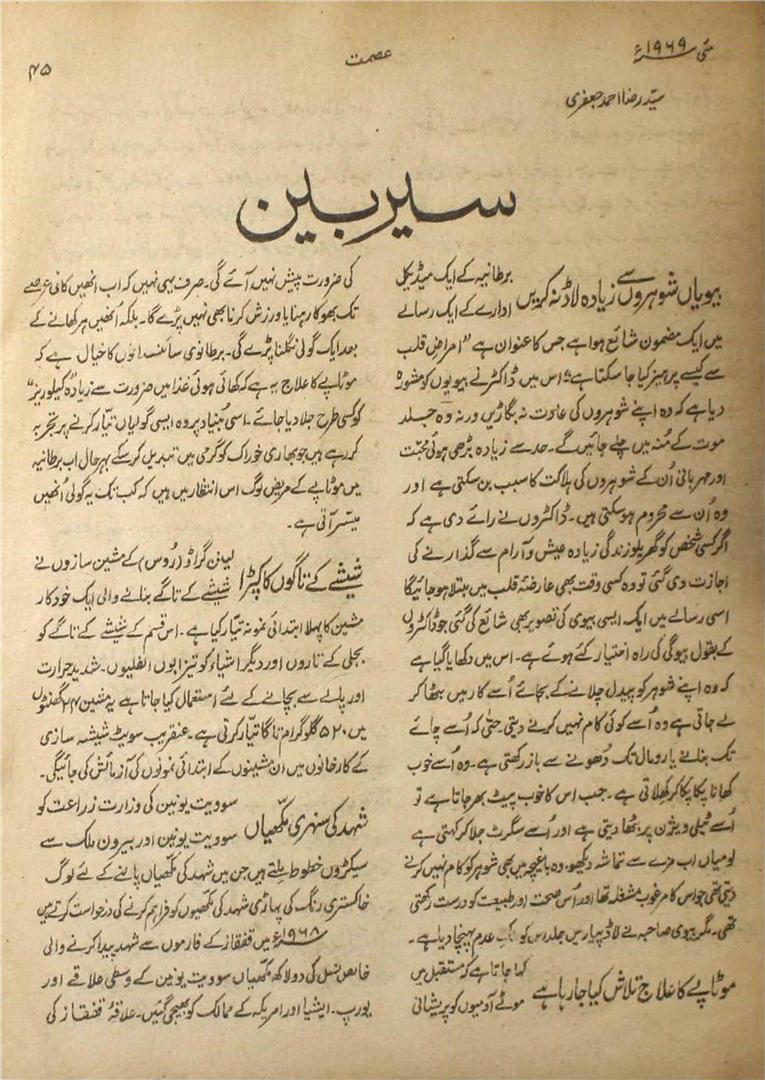 مئی ۱۹۶۹ء
عصمت
۴۵
سیّد رضا احمد جعفری
سیربین
بیویاں شوہروں سے زیادہ لاڈ نہ کریں
برطانیہ کے ایک میڈیکل
ادارے کے ایک رسالے
میں ایک مضمون شائع ہوا ہے جس کا عنوان ہے "امراضِ قلب
سے کیسے پرہیز کیا جا سکتا ہے" اس میں ڈاکٹر نے بیویوں کو مشورہ
دیا ہے کہ وہ اپنے شوہروں کی عادت نہ بگاڑیں ورنہ وہ جلد
موت کے مُنہ میں چلے جائیں گے۔ حد سے زیادہ بڑھی ہوئی محبّت
اور مہربانی اُن کے شوہروں کی ہلاکت کا سبب بن سکتی ہے اور
وہ اُن سے محروم ہو سکتی ہیں۔ ڈاکٹروں نے رائے دی ہے کہ
اگر کسی شخص کو گھریلو زندگی زیادہ عیش و آرام سے گذارنے کی
اجازت دی گئی تو وہ کسی وقت بھی عارضۂ قلب میں مبتلا ہو جائیگا
اسی رسالے میں ایک ایسی بیوی کی تصویر بھی شائع کی گئی جو ڈاکٹروں
کے بقول بیوگی کی راہ اختیار کئے ہوئے ہے۔ اس میں دکھایا گیا ہے
کہ وہ اپنے شوہر کو پیدل چلانے کے بجائے اُسے کار میں بٹھا کر
لے جاتی ہے وہ اُسے کوئی کام نہیں کرنے دیتی۔ حتیٰ کہ اُسے چائے
تک بنانے یا رومال تک دھونے سے باز رکھتی ہے۔ وہ اُسے خوب
کھانا پکا پکا کر کھلاتی ہے۔ جب اس کا خوب پیٹ بھر جاتا ہے تو
اُسے ٹیلی ویژن پر بٹھا دیتی ہے اور اُسے سگرٹ جلا کر کہتی ہے
لو میاں اب مزے سے تماشہ دیکھو، وہ باغیچہ میں بھی شوہر کو کام نہیں کرنے
دیتی تھی جو اس کا مرغوب مشغلہ تھا اور اُس صحت اور طبیعت کو درست رکھتی
تھی۔ مگر بیوی صاحبہ نے لاڈ پیار میں جلد اس کو عدم پہنچا دیا ہے۔
موٹاپے کا علاج تلاش کیا جا رہا ہے
کہا جاتا ہے کہ مستقبل میں
موٹے آدمیوں کو پریشانی
کی ضرورت پیش نہیں آئے گی۔ صرف یہی نہیں کہ اب انھیں کافی عرصے
تک بھوکا رہنا یا ورزش کرنا بھی نہیں پڑے گا۔ بلکہ اُنھیں ہر کھانے کے
بعد ایک گولی نگلنا پڑے گی۔ برطانوی سائنسدانوں کا خیال ہے کہ
موٹاپے کا علاج یہ ہے کہ کھائی ہوئی غذا میں ضرورت سے زیادہ "کیلوریز"
کو کسی طرح جلا دیا جائے۔ اسی بُنیاد پر وہ ایسی گولیاں تیّار کرنے پر تجربہ
کر رہے ہیں جو بھاری خوراک کو گرمی میں تبدیل کر سکے بہرحال اب برطانیہ
میں موٹاپے کے مریض لوگ اس انتظار میں ہیں کہ کب تک یہ گولی اُنھیں
میسّر آتی ہے۔
شیشے کے تاگوں کا کپڑا
لینن گراڈ (رُوس) کے مشین سازوں نے
شیشے کے تاگے بنانے والی ایک خودکار
مشین کا پہلا ابتدائی نمونہ تیّار کیا ہے۔ اس قسم کے شیشے کے تاگے کو
بجلی کے تاروں اور دیگر اشیاء کو تیزابوں القلیوں۔ شدید حرارت
اور پالے سے بچانے کے لئے استعمال کیا جاتا ہے یہ مشین ۲۴ گھنٹوں
میں ۵۲۰ کلوگرام تاگا تیّار کرتی ہے۔ عنقریب سویٹ شیشہ سازی
کے کارخانوں میں ان مشینوں کے ابتدائی نمونوں کی آزمائش کی جائیگی۔
شہد کی سنہری مکّھیاں
سوویت یونین کی وزارت زراعت کو
سوویت یونین اور بیرون ملک سے
سیکڑوں خطوط ملتے ہیں جن میں شہد کی مکّھیاں پالنے کے لئے لوگ
خاکستری رنگ کی پہاڑی شہد کی مکّھیوں کو فراہم کرنے کی درخواست کرتے ہیں
۱۹۶۸ء میں قفقاز کے فارموں سے شہد پیدا کرنے والی
خالص نسل کی دو لاکھ مکّھیاں سوویت یونین کے وسطی علاقے اور
یورپ۔ ایشیا اور امریکہ کے ممالک کو بھیجی گئیں۔ علاقۂ قفقاز کی